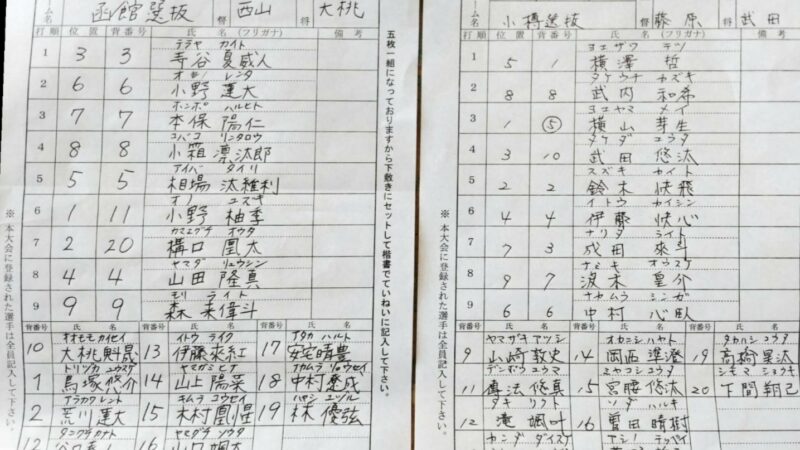 ーム名 函館選抜 監督 西山 主将 大桃
打順 位置 背番号 氏 名 (フリガナ) 備考
テラヤ カイト
1 3 3 寺谷 夏威人
オノ レンタ
2 6 6 小野 蓮大
ホンボ ハルヒト
3 7 7 本保 陽仁
コバコ リンタロウ
4 8 8 小箱 凛汰郎
アイバ タイリ
5 5 5 相場 汰維利
オノ ユズキ
6 1 11 小野 柚季
カマエグチ オウタ
7 2 20 構口 凰太
ヤマダ リュウシン
8 4 4 山田 隆真
モリ ライト
9 9 9 森 来偉斗
背番号 氏 名 背番号 氏 名 背番号 氏 名
オオモモ カイセイ イトウ ライク アタカ ハルト
10 大桃魁晟 13 伊藤來紅 17 安宅晴豊
トリヅカ ユウスケ ヤマガミ ヒナ ナカムラ リョウセイ
1 鳥塚悠介 14 山上陽菜 18 中村遼成
アラカワ レント キムラ コウセイ ハヤシ ユヅル
2 荒川蓮大 15 木村凰惺 19 林優弦
タニグチカナト ヤマグチ ソウタ
12 16 山口颯太
※本大会に登録された選手は全員記入して下さい。
五枚一組になっておりますから下敷きにセットして楷書でていねいに記入して下さい。
ーム名 小樽選抜 監督 藤原 主将 武田
打順 位置 背番号 氏 名 (フリガナ) 備考
ヨコザワ テツ
1 5 1 横澤 哲
タケウチ カズキ
2 8 8 武内 和希
ヨコヤマ メイ
3 1 ⑤ 横山 芽生
タケダ ユウタ
4 3 10 武田 悠汰
スズキ カイト
5 2 2 鈴木 快飛
イトウ カイシン
6 4 4 伊藤 快心
ナリタ ライト
7 7 3 成田 來斗
ナミキ オウスケ
8 9 7 波木 皇介
ナカムラ シンガ
9 6 6 中村 心臥
背番号 氏 名 背番号 氏 名 背番号 氏 名
ヤマザキ アツシ オカニシ ハヤト タカハシ コウタ
9 山崎敦史 14 岡西準澄 19 高橋昊汰
デンボウ ユウマ ミヤコシ ユウタ シモマ ショウキ
11 傳法悠真 15 宮腰悠汰 20 下間翔己
タキ リクト ソダ ハルキ
12 滝 颯叶 16 曽田晴樹
カンダ ダイスケ アシノ テッペイ
※本大会に登録された選手は全員記入して下さい。